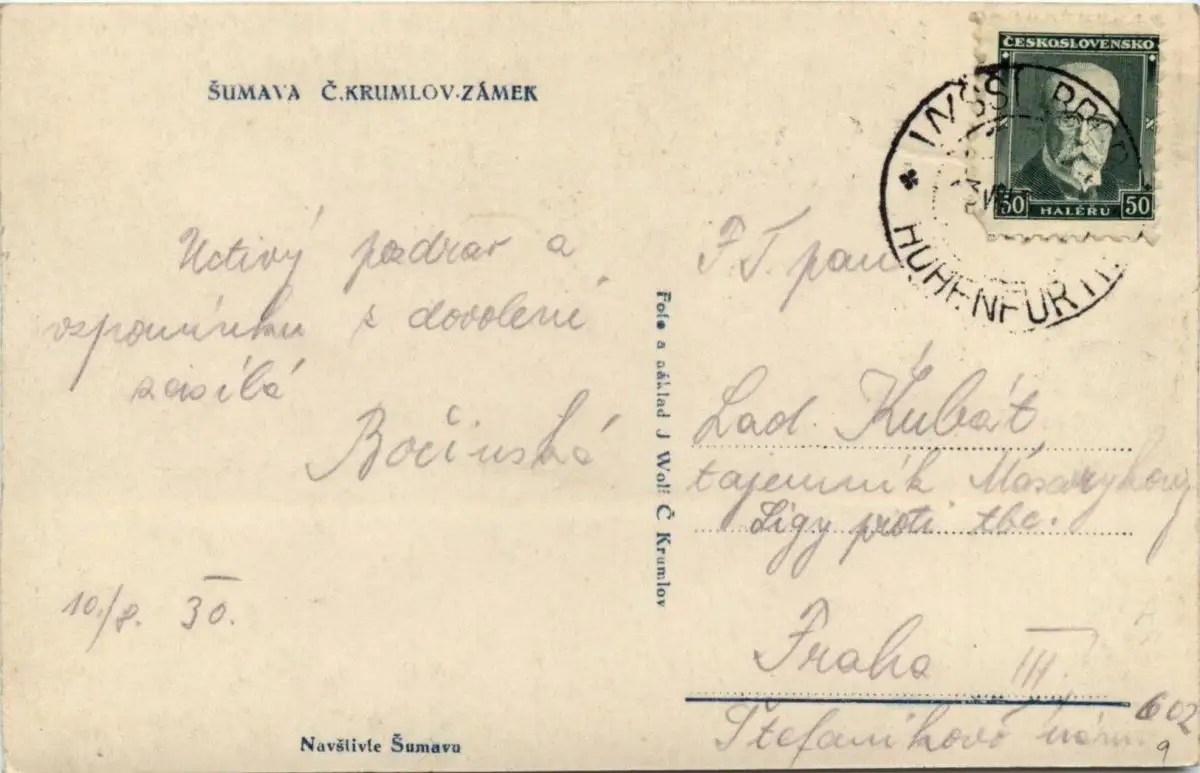 ŠUMAVA Č.KRUMLOV-ZÁMEK
ČESKOSLOVENSKO
50 HALÉŘŮ 50
VYŠŠÍ BROD
HOHENFURTH
Uctivý pozdrav a
vzpomínku z dovolené
zasílá
Bočinská
10./8. 30.
Navštivte Šumavu
Foto a náklad J Wolf Č Krumlov
P. T. pan
Lad. Kubát
tajemník Masarykovy
Ligy proti tbc.
Praha III,
Štefanikovo nám.
602
9